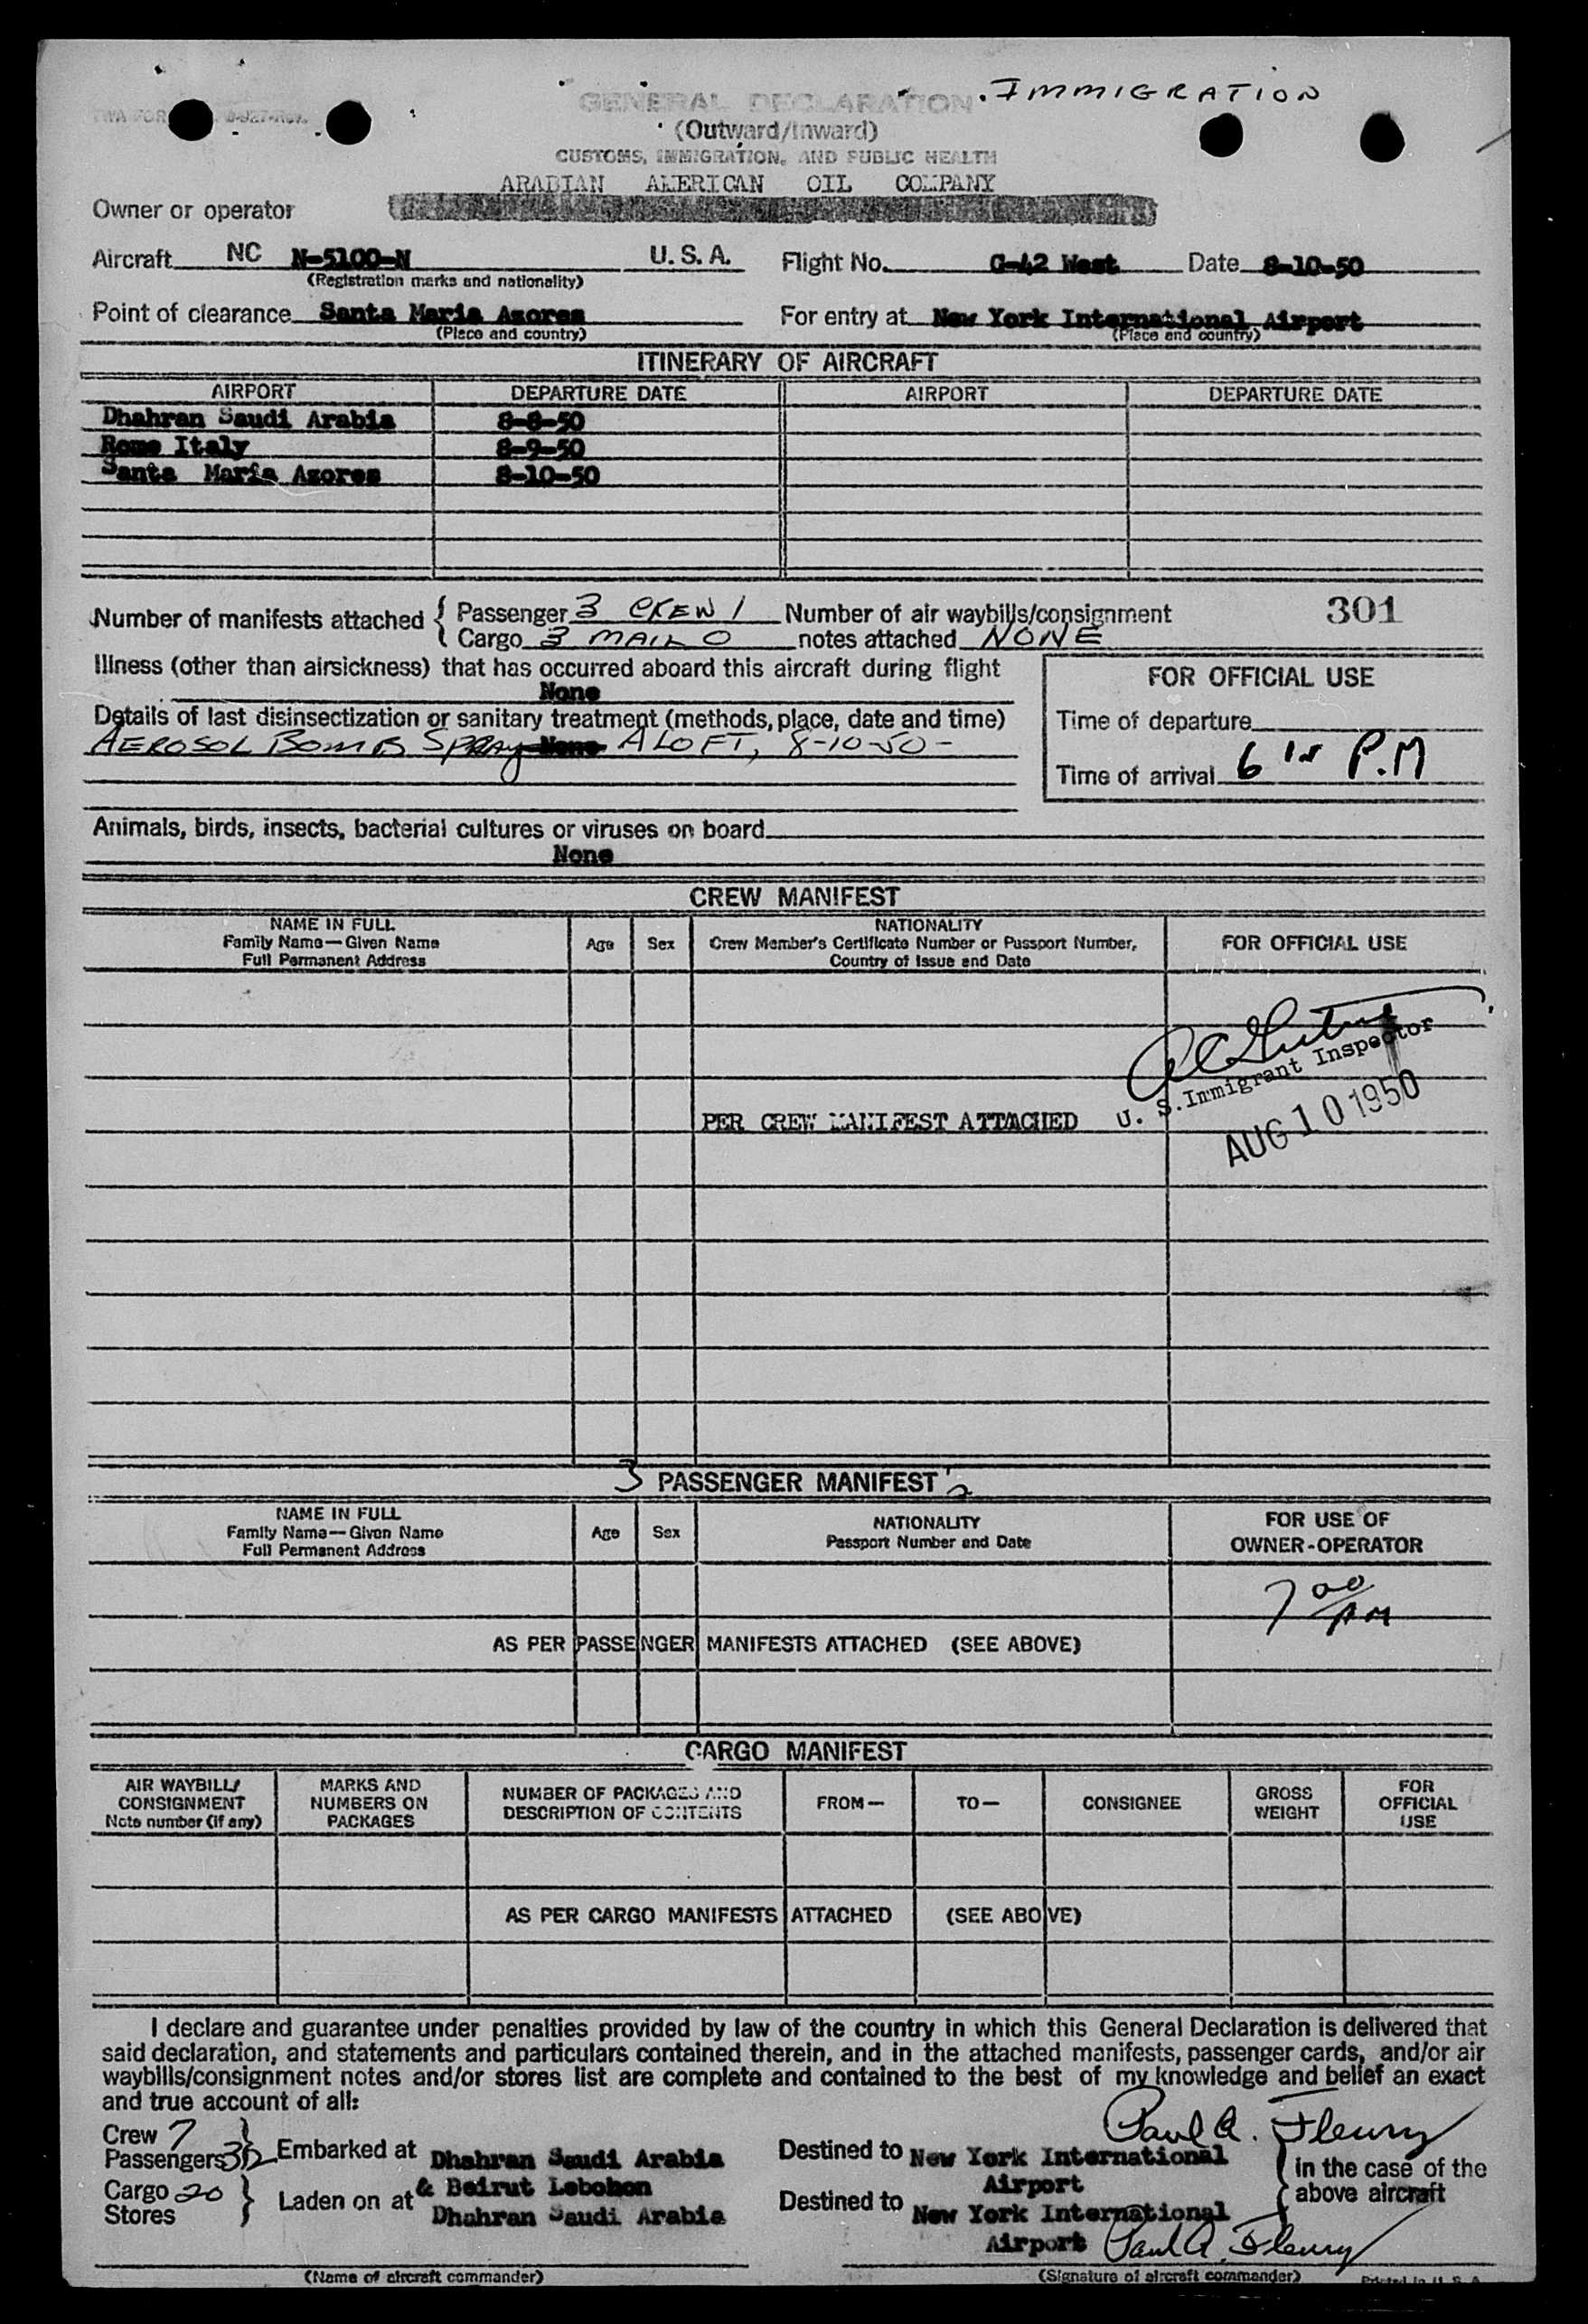 IMMIGRATION
TWA FOR
GENERAL DECLARATION
(Outward/Inward)
CUSTOMS, IMMIGRATION, AND PUBLIC HEALTH
ARABIAN AMERICAN OIL COMPANY
Owner or operator
Aircraft NC N-5100-N U. S. A. Flight No. G-42 West Date 8-10-50
(Registration marks and nationality)
Point of clearance Santa Maria Azores For entry at New York International Airport
(Place and country) (Place and country)
ITINERARY OF AIRCRAFT
AIRPORT DEPARTURE DATE AIRPORT DEPARTURE DATE
Dhahran Saudi Arabia 8-8-50
Rome Italy 8-9-50
Santa Maria Azores 8-10-50
Number of manifests attached { Passenger 3 CREW 1 Number of air waybills/consignment 301
Cargo 3 MAIL 0 notes attached NONE
Illness (other than airsickness) that has occurred aboard this aircraft during flight
None
FOR OFFICIAL USE
Details of last disinsectization or sanitary treatment (methods, place, date and time)
AEROSOL BOMB SPRAY None ALOFT, 8-10-50-
Time of departure
Time of arrival 6 P.M
Animals, birds, insects, bacterial cultures or viruses on board
None
CREW MANIFEST
NAME IN FULL
Family Name—Given Name
Full Permanent Address
Age
Sex
NATIONALITY
Crew Member's Certificate Number or Passport Number,
Country of Issue and Date
FOR OFFICIAL USE
U. S. Immigrant Inspector
AUG 10 1950
PER CREW MANIFEST ATTACHED
3 PASSENGER MANIFEST's
NAME IN FULL
Family Name—Given Name
Full Permanent Address
Age
Sex
NATIONALITY
Passport Number and Date
FOR USE OF
OWNER-OPERATOR
7 00
AM
AS PER PASSENGER MANIFESTS ATTACHED (SEE ABOVE)
CARGO MANIFEST
AIR WAYBILL/
CONSIGNMENT
Note number (if any)
MARKS AND
NUMBERS ON
PACKAGES
NUMBER OF PACKAGES AND
DESCRIPTION OF CONTENTS
FROM—
TO—
CONSIGNEE
GROSS
WEIGHT
FOR
OFFICIAL
USE
AS PER CARGO MANIFESTS ATTACHED (SEE ABOVE)
I declare and guarantee under penalties provided by law of the country in which this General Declaration is delivered that
said declaration, and statements and particulars contained therein, and in the attached manifests, passenger cards, and/or air
waybills/consignment notes and/or stores list are complete and contained to the best of my knowledge and belief an exact
and true account of all:
Paul A. Fleury
Crew 7
Passengers 32 } Embarked at Dhahran Saudi Arabia Destined to New York International
& Beirut Lebohon Airport
Cargo 20
Stores } Laden on at Dhahran Saudi Arabia Destined to New York International
Airport
{ in the case of the
above aircraft
Paul A. Fleury
(Name of aircraft commander) (Signature of aircraft commander) Printed in U. S. A.